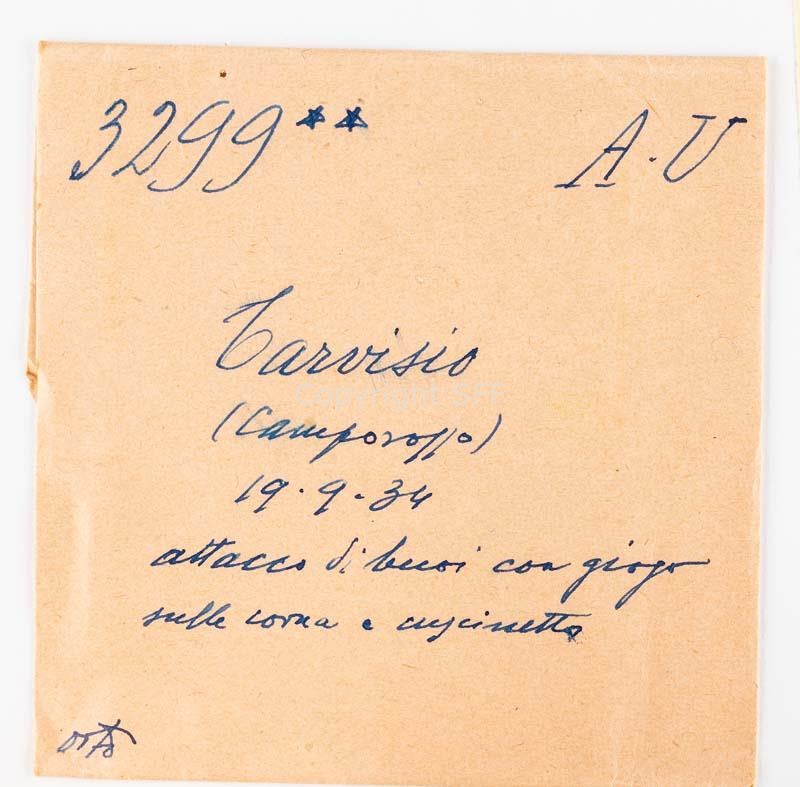 3299** A.U
Tarvisio
Copyright SFF
(Camporosso)
19.9.34
attacco di buoi con giogo
sulle corna e cuscinetto
orto